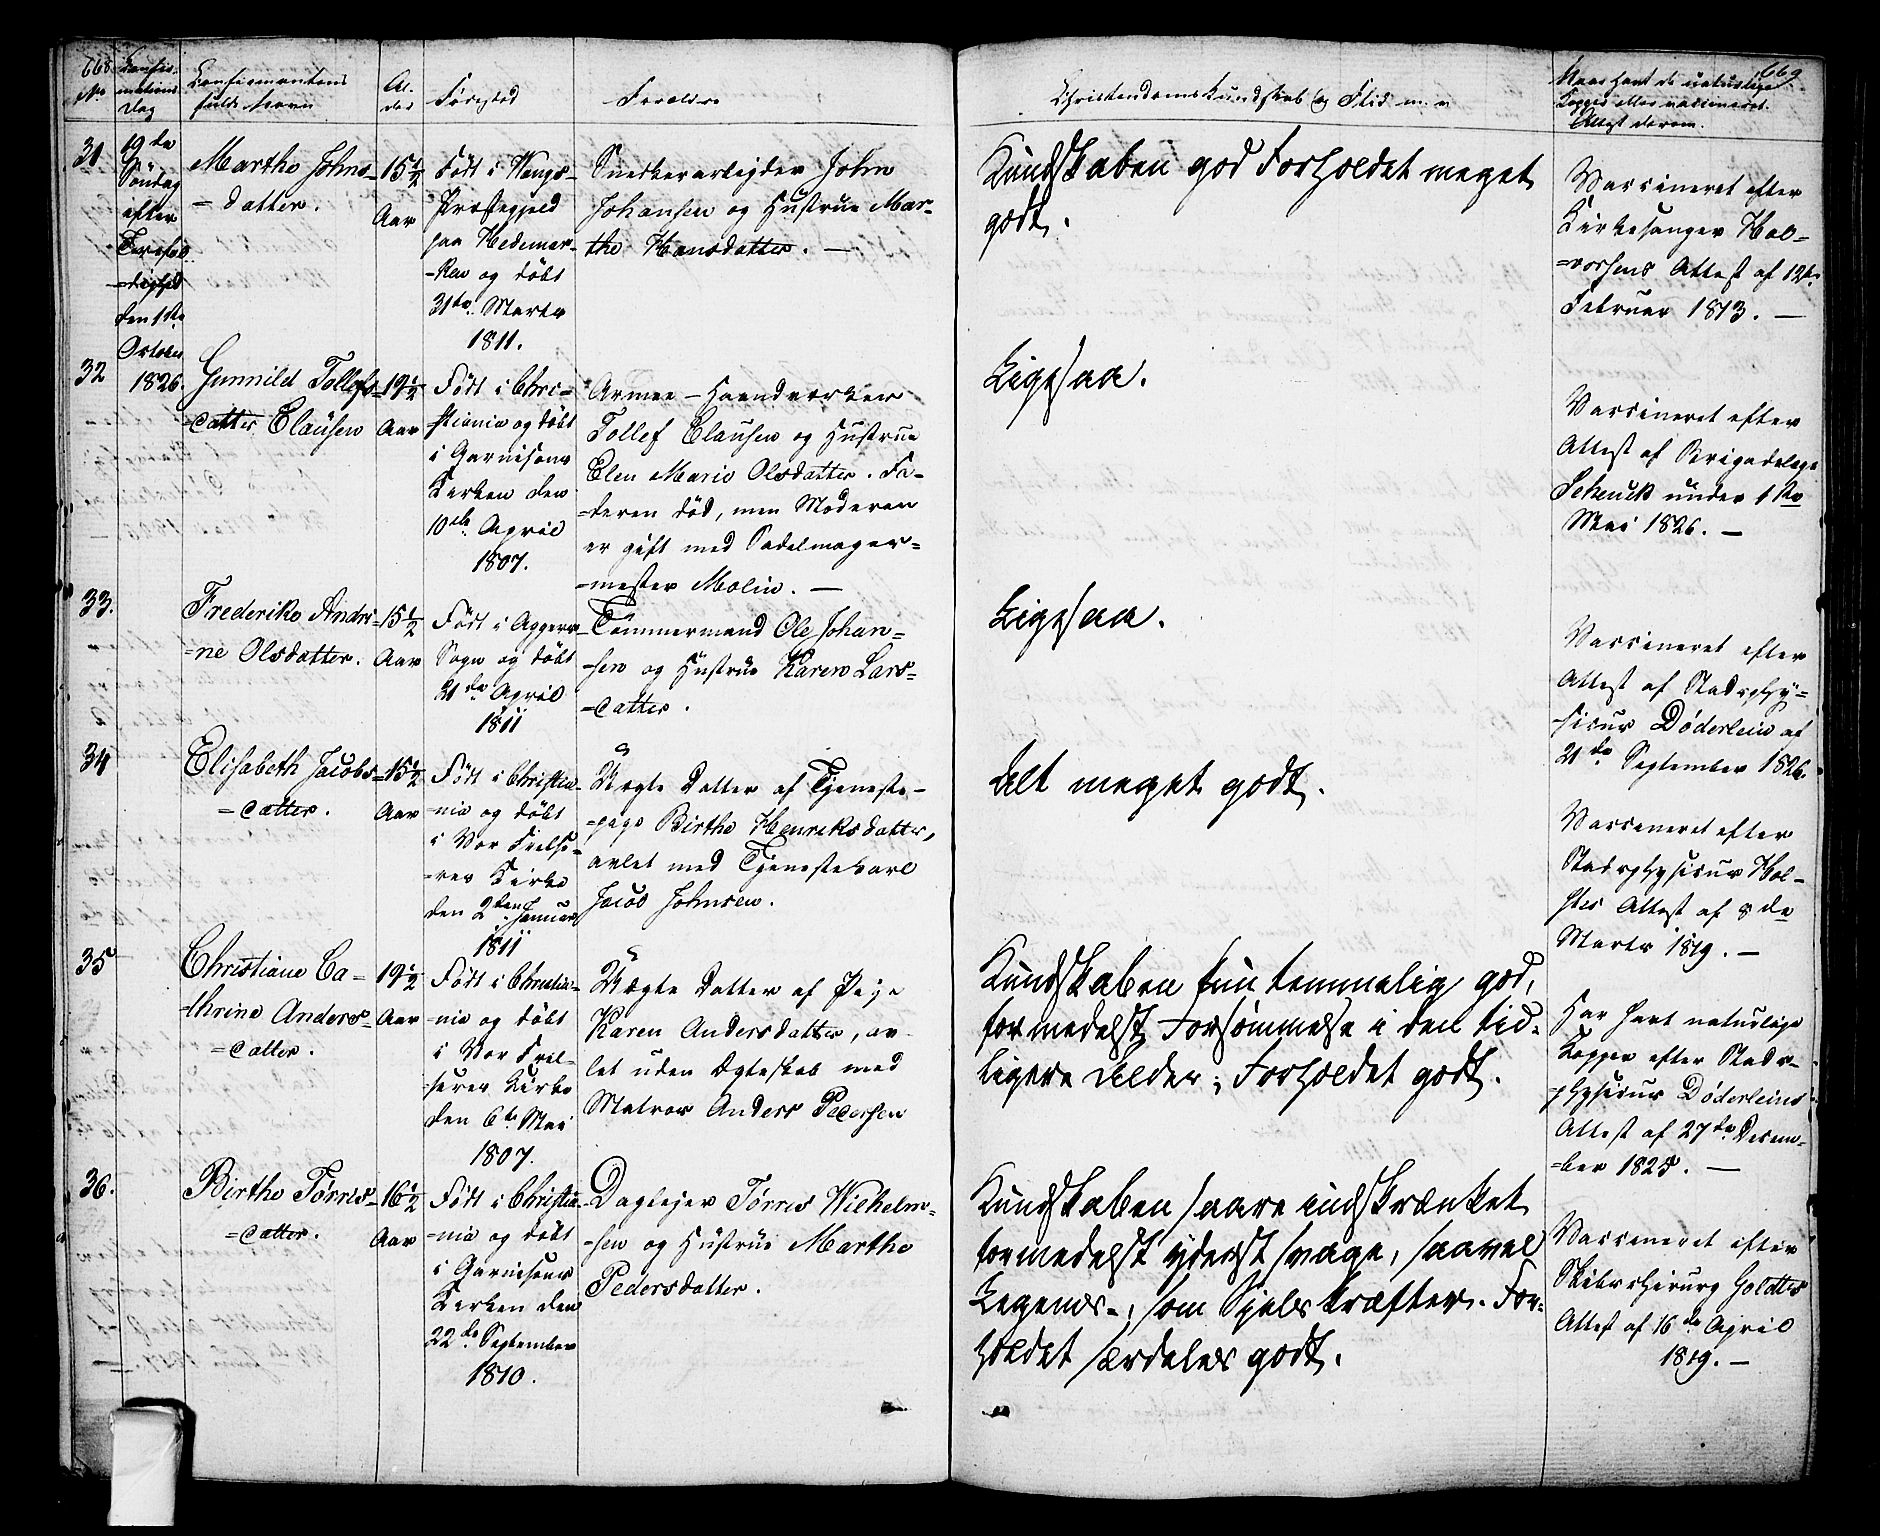 668
No.
Confir-
mations
Dag
Confirmantens
fulde Navn
Al-
der
Fødested
Forældre
Christendoms Kundskab og Flid m. v.
669
Naar havt de naturlige
Kopper eller vaccineret.
Attest derom.
31
19de
Søndag
efter
Trefol-
dighed
den 1ste
October
1826.
Marthe Johns-
-datter.
15 1/2
Aar
Født i Wangs-
Præstegjeld
paa Hedemar-
-ken og døbt
31te Marts
1811.
Snedkerarbejder John
Johansen og Hustrue Mar-
the Hansdatter. —
Kundskaben god Forholdet meget
godt.
Vaccineret efter
Kirkesanger Hal-
=vorsens Attest af 12te
Februar 1813. —
32
Gunnild Tollefs=
=datter Clausen
19 1/2
Aar
Født i Chri-
stiania og døbt
i Garnisons
Kirken den
10de April
1807.
Armee-Haandværker
Tollef Clausen og Hustrue
Elen Marie Olsdatter. Fa-
=deren død, men Moderen
er gift med Sadelmager=
=mester Molin. —
Ligesaa.
Vaccineret efter
Attest af Brigadelæge
Schenck under 1ste
Mai 1826. —
33.
Frederike Andri=
=ne Olsdatter.
15 1/2
Aar
Født i Aggers
Sogn og døbt
21de April
1811
Tømmermand Ole Johan=
=sen og Hustrue Karen Lars=
=datter.
Ligesaa.
Vaccineret efter
Attest af Stadsphy=
=sicus Døderlein af
21de September 1826.
34
Elisabeth Jacobs=
=datter.
15 1/2
Aar
Født i Christia=
=nia og døbt
i Vor Frelse-
=res Kirke
den 2den Januar
1811
Uægte Datter af Tjeneste-
=pige Birthe Henriksdatter,
avlet med Tjenestekarl
Jacob Johnsen.
Alt meget godt.
Vaccineret efter
Stadsphysicus Hol-
stes Attest af 8de
Marts 1819. —
35
Christiane Ca=
thrine Anders=
=datter.
19 1/2
Aar
Født i Christia=
=nia og døbt
i Vor Frel-
serer Kirke
den 6te Mai
1807.
Uægte Datter af Pige
Karen Andersdatter, av-
let uden Ægteskab med
Matros Anders Pedersen
Kundskaben kun temmelig god,
formedelst Forsømmelse i den tid-
ligere Alder; Forholdet godt.
Har havt naturlige
Kopper efter Stads-
=physicus Døderleins
Attest af 27de Decem-
=ber 1825. —
36.
Birthe Tørres=
=datter.
16 1/2
Aar
Født i Christia=
=nia og døbt
i Garnisons
Kirken den
22de September
1810.
Daglejer Tørres Wilhelm=
=sen og Hustrue Marthe
Pedersdatter.
Kundskaben saare indskrænket
formedelst yderst svage, saavel
Legems-, som Sjels kræfter. For-
holdet særdeles godt.
Vaccineret efter
Skibschirurg Goldtes
Attest af 16de April
1819. —